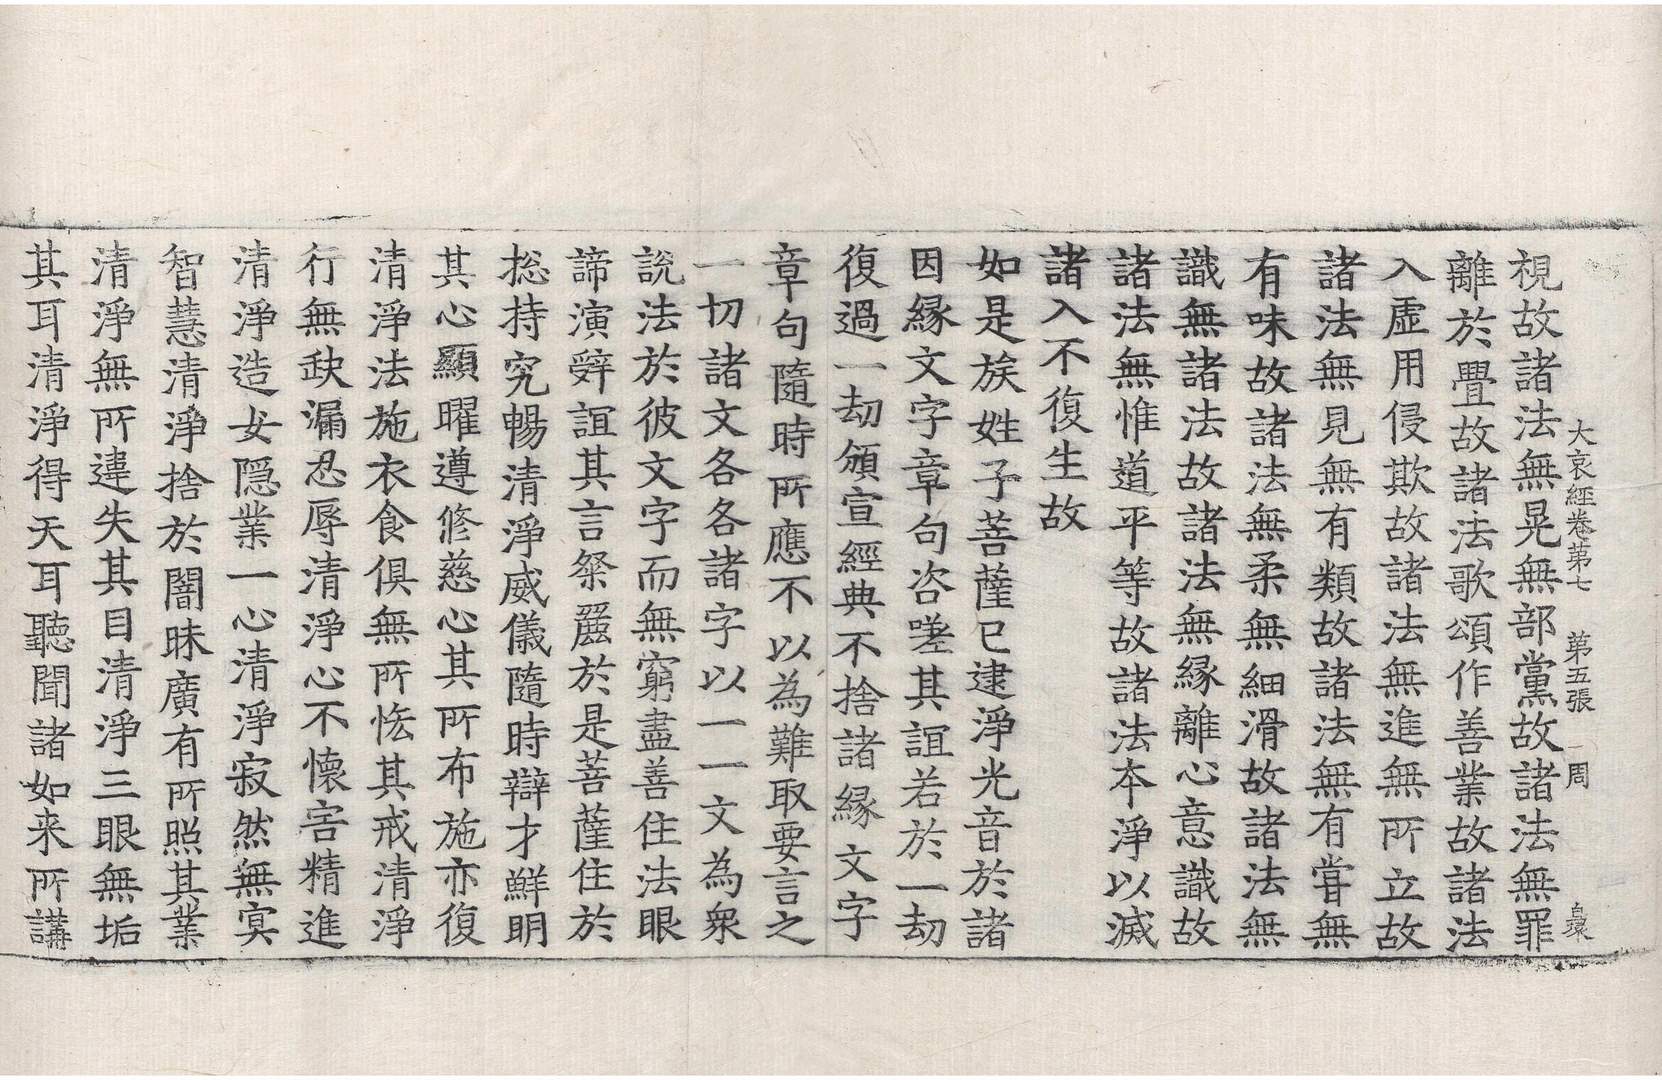 大哀經卷第七 第五張 周
視故諸法無晃無部黨故諸法無罪
離於畳故諸法歌頌作善業故諸法
入虛用侵欺故諸法無進無所立故
諸法無見無有類故諸法無有甞無
有味故諸法無柔無細滑故諸法無
識無諸法故諸法無緣離心意識故
諸法無惟道平等故諸法本淨以滅
諸入不復生故
如是族姓子菩薩已逮淨光音於諸
因緣文字章句咨嗟其誼若於一劫
復過一劫頒宣經典不捨諸緣文字
章句隨時所應不以為難取要言之
一切諸文各各諸字以一一文為衆
說法於彼文字而無窮盡善住法眼
諦演辤誼其言粲麗於是菩薩住於
捴持究暢清淨威儀隨時辯才鮮明
其心顯曜遵修慈心其所布施亦復
清淨法施衣食俱無所悋其戒清淨
行無缺漏忍辱清淨心不懷害精進
清淨造立隱業一心清淨寂然無冥
智慧清淨捨於闇昧廣有所照其業
清淨無所違失其目清淨三眼無垢
其耳清淨得天耳聽聞諸如来所講